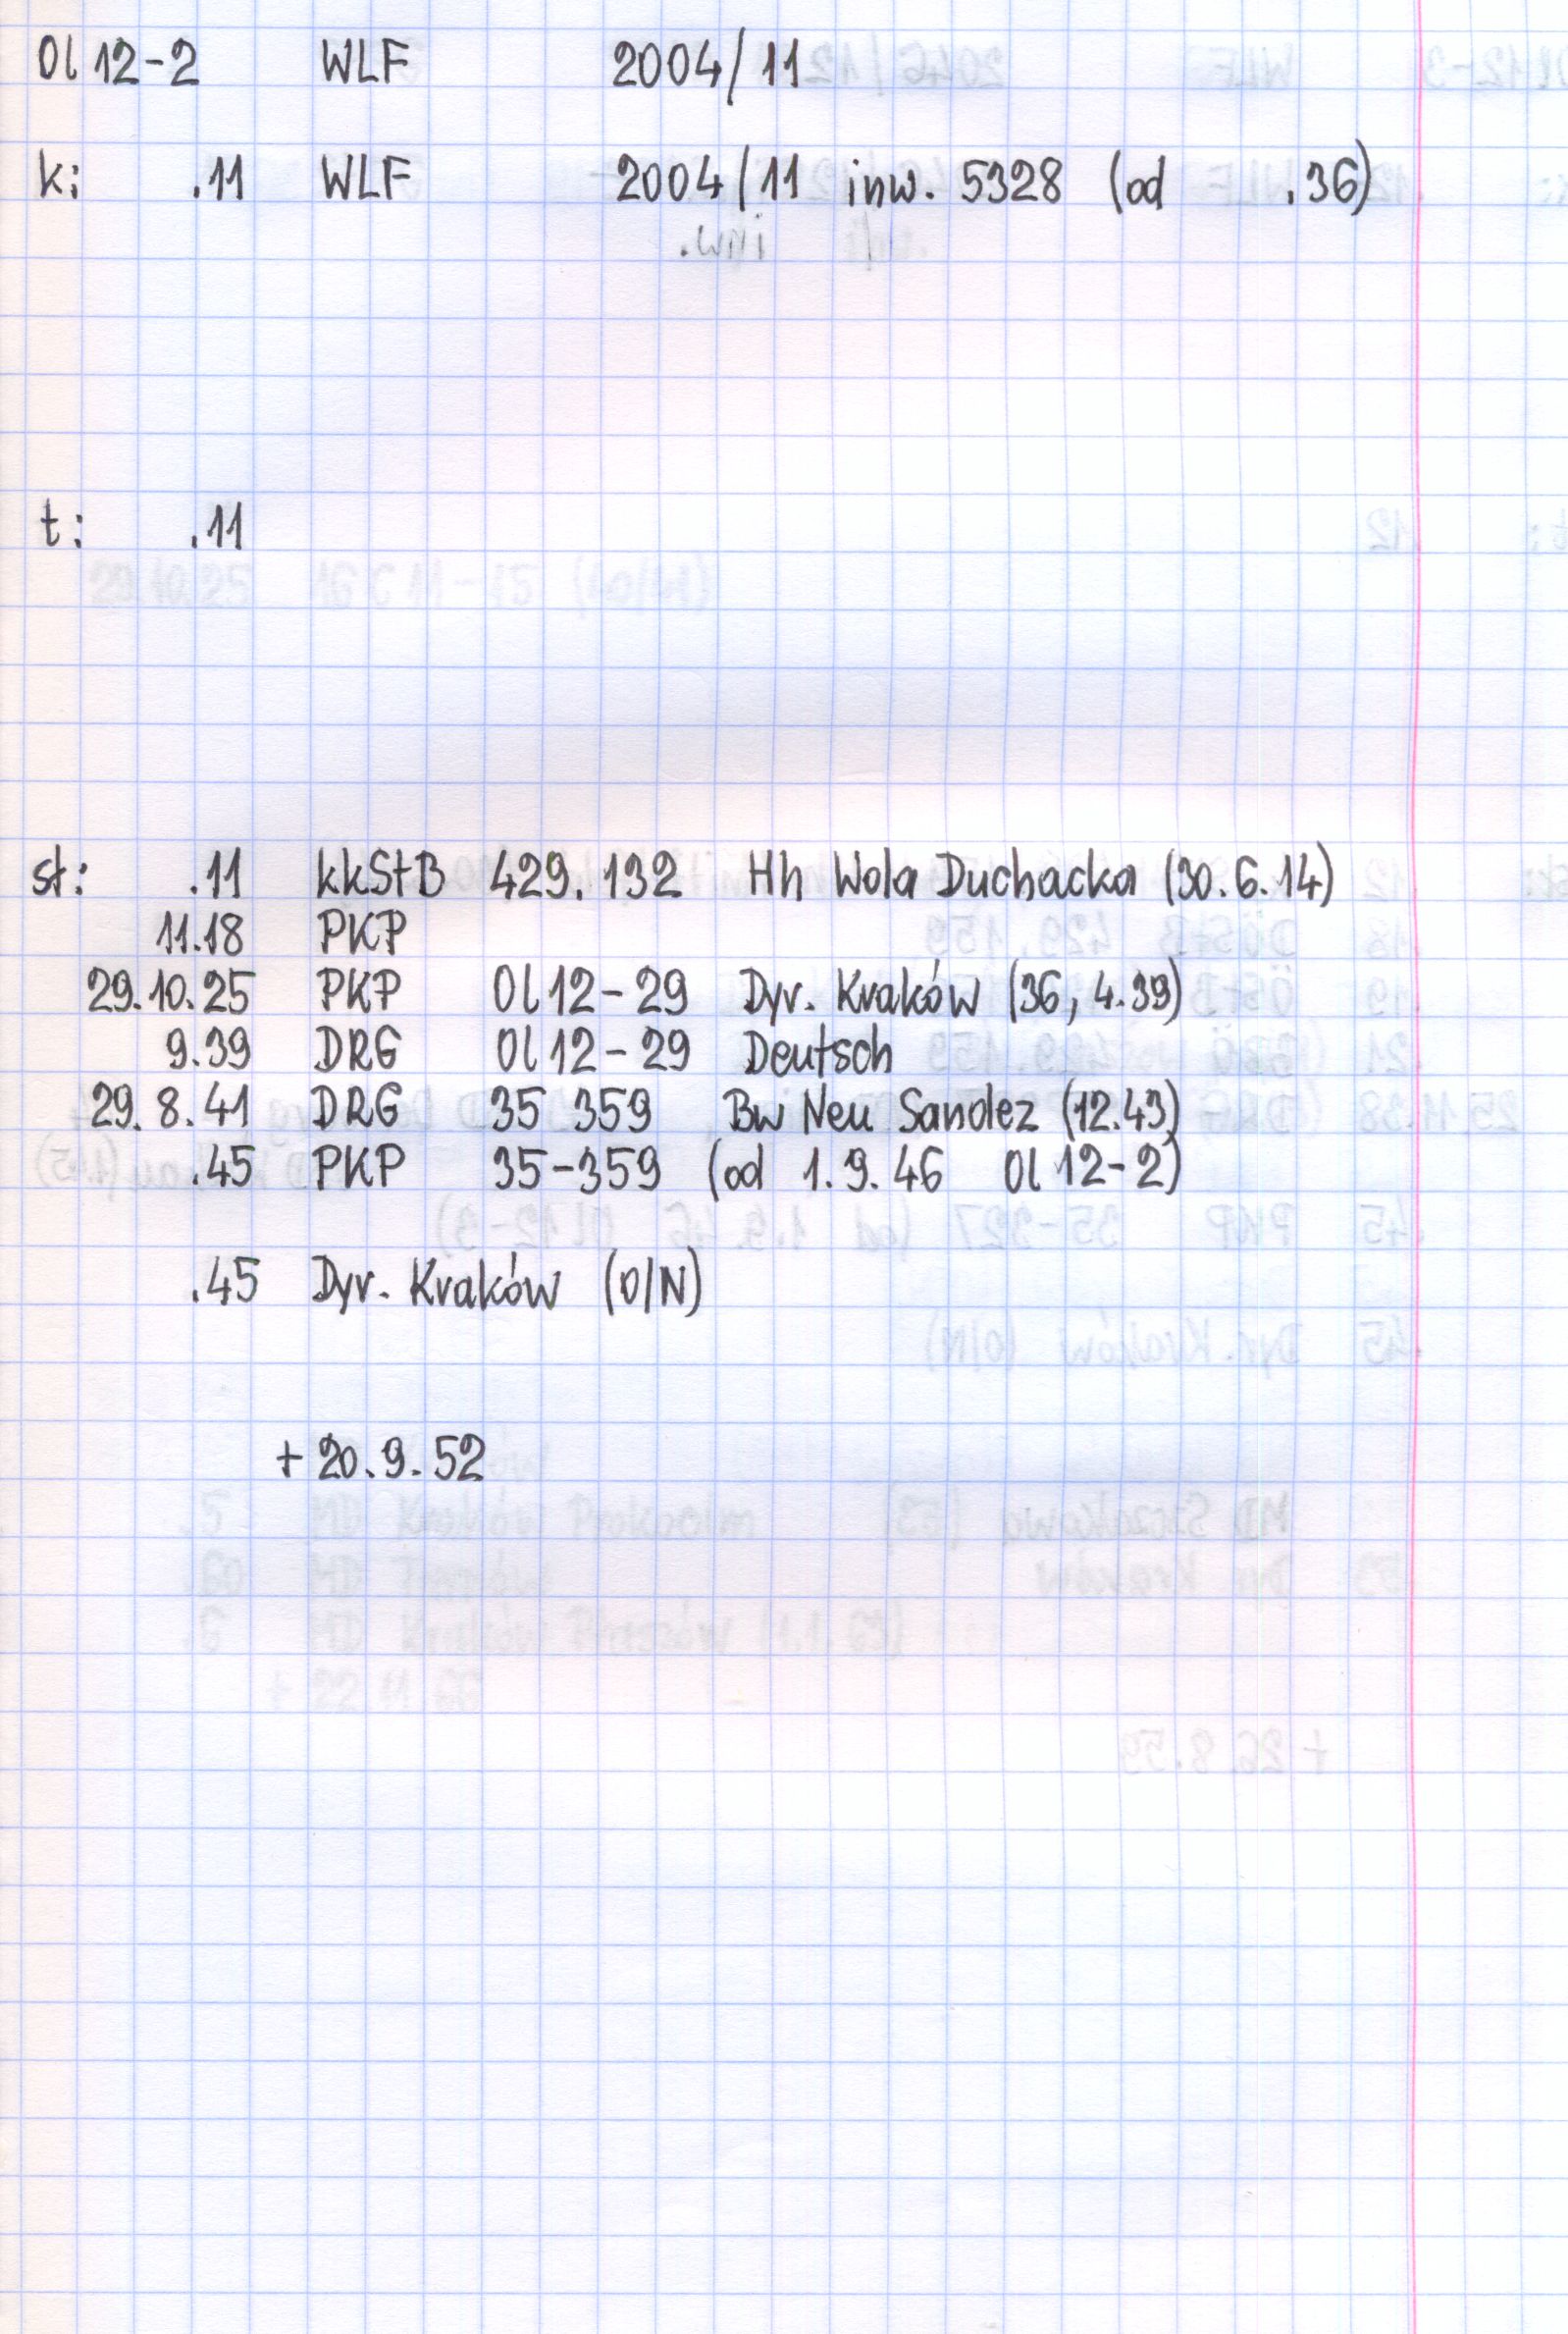 Ol 12-2 WLF 2004/11
k: .11 WLF 2004/11 inw. 5328 (od .36)
t: .11
st: .11 kkStB 429.132 Hh Wola Duchacka (30.6.14)
11.18 PKP
29.10.25 PKP Ol 12-29 Dyr. Kraków (36, 4.39)
9.39 DRG Ol 12-29 Deutsch
29.8.41 DRG 35 359 Bw Neu Sandez (12.43)
.45 PKP 35-359 (od 1.9.46 Ol 12-2)
.45 Dyr. Kraków (O/N)
+ 20.9.52